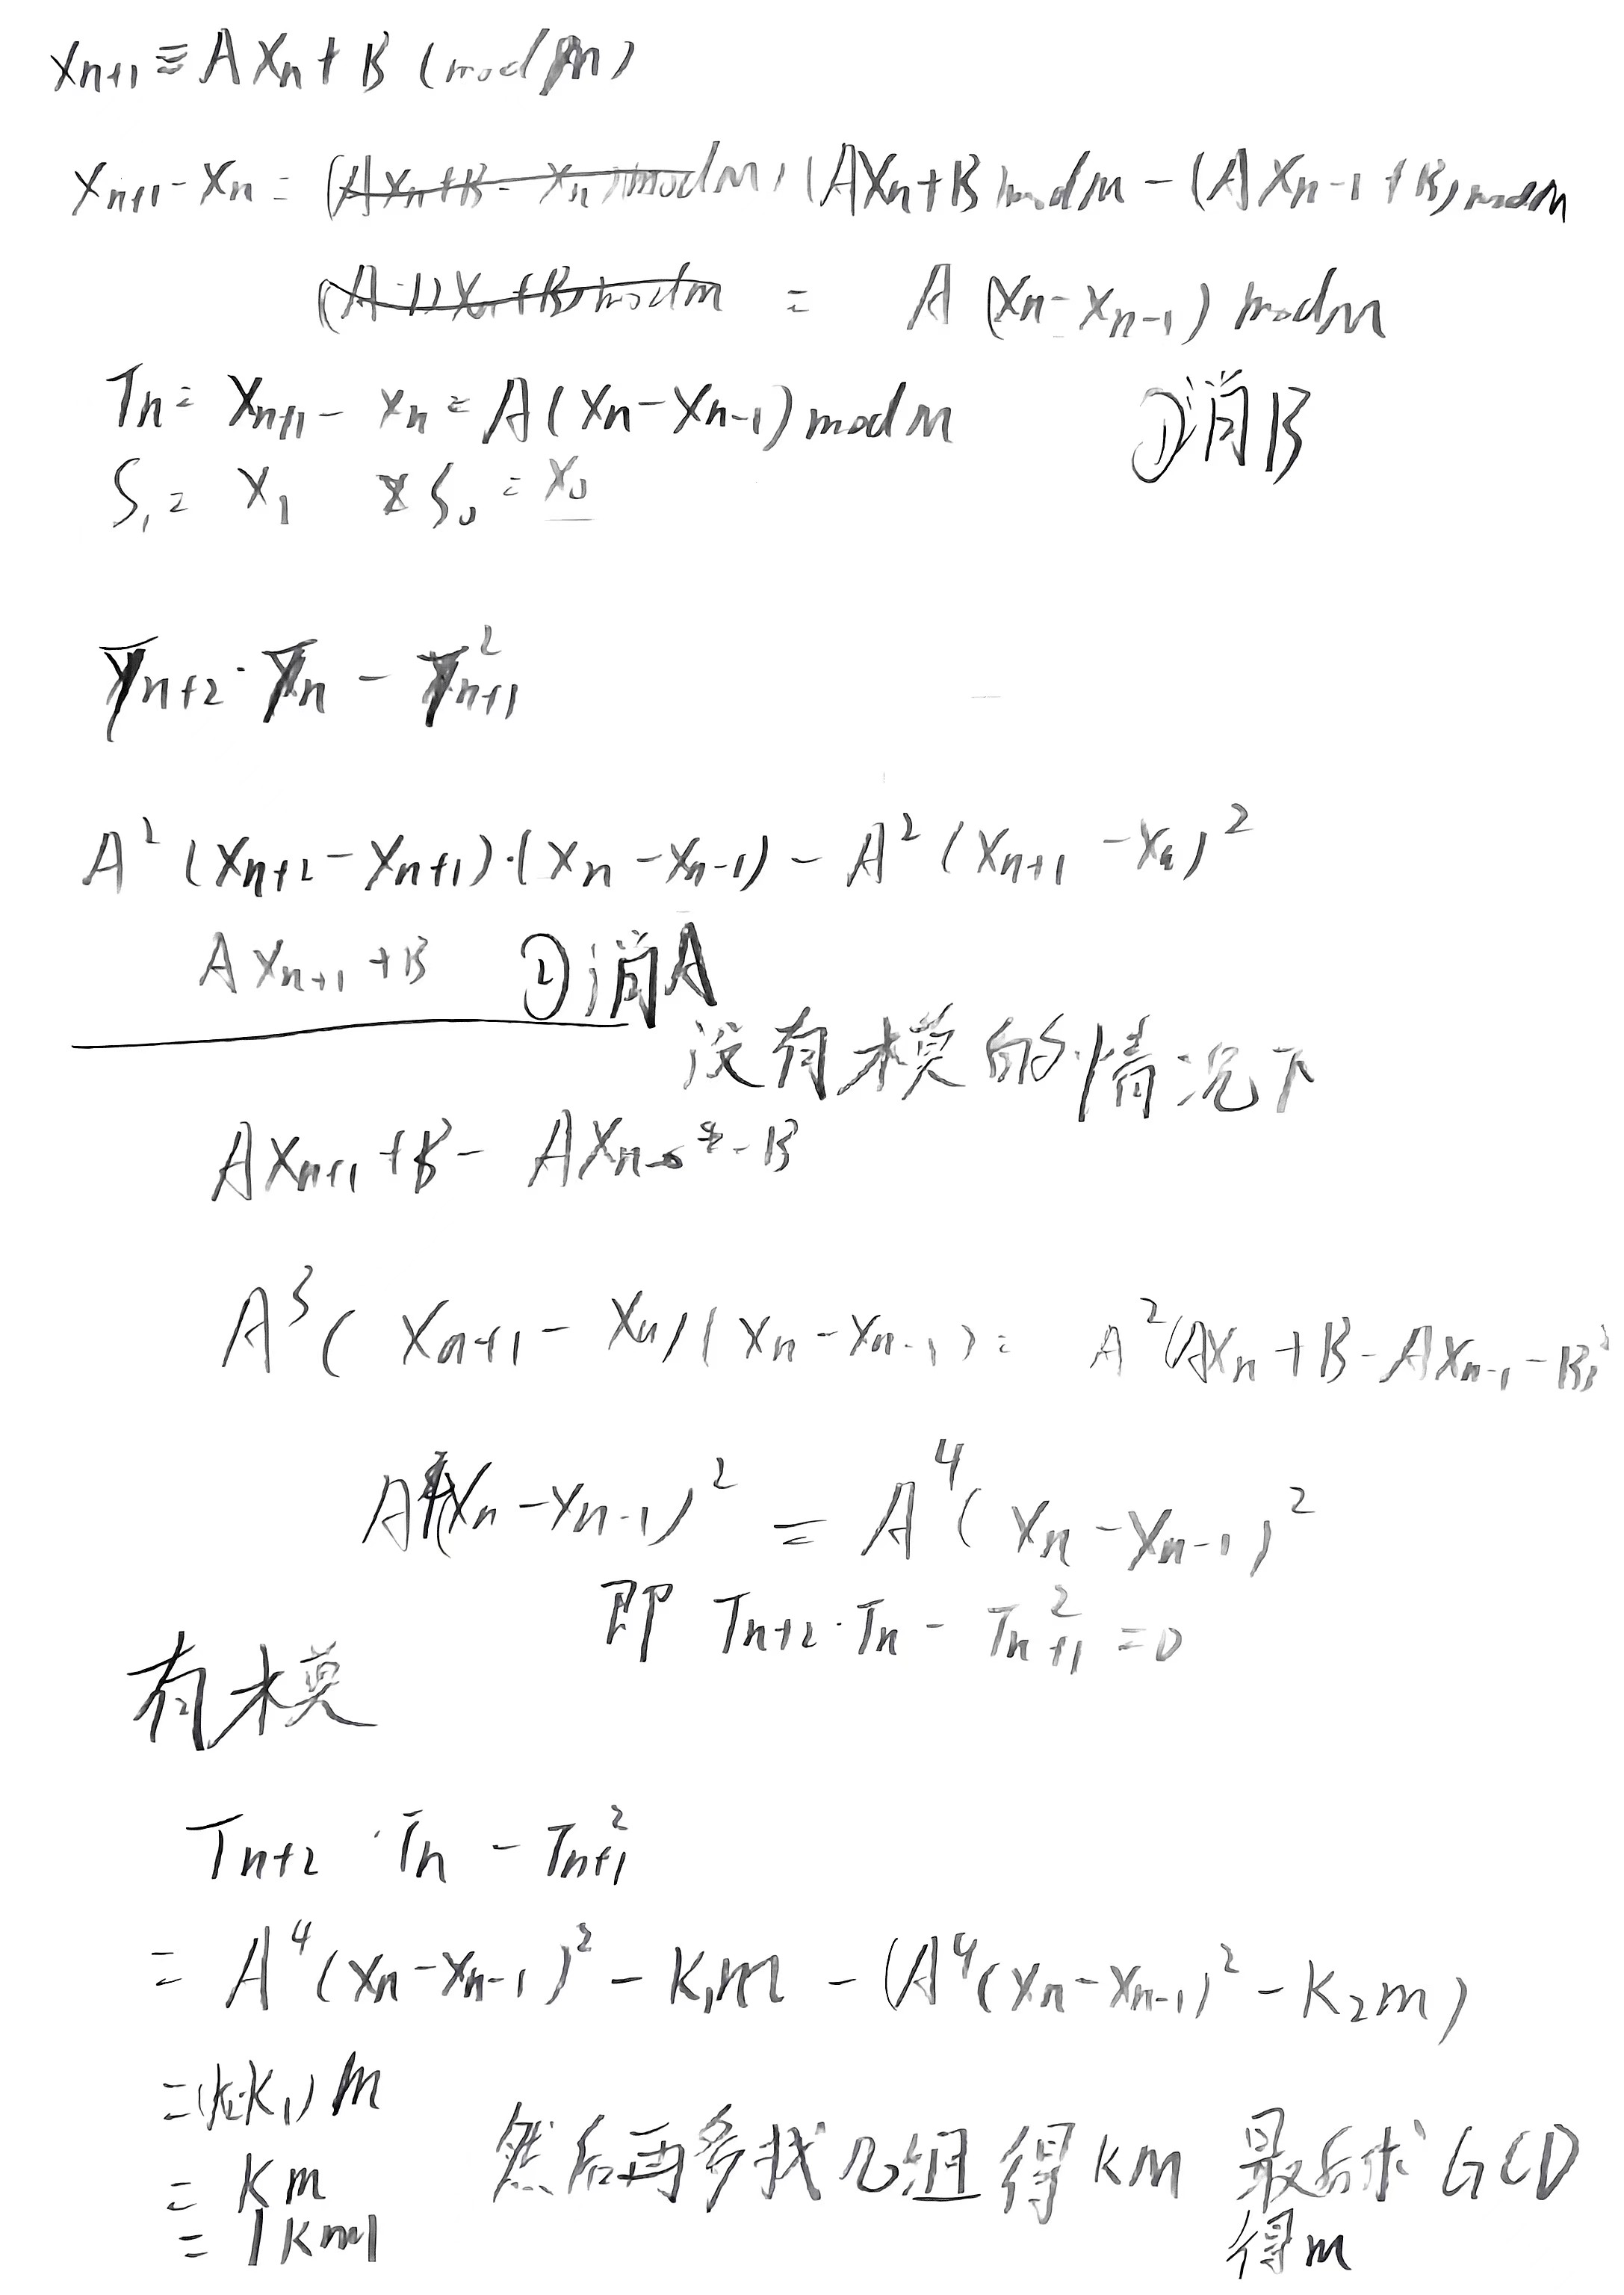 Xn+1 ≡ A Xn + B (mod m)
Xn+1 - Xn = (A Xn + B - Xn) mod m, (A Xn + B) mod m - (A Xn-1 + B) mod m
(A-1) Xn + B) mod m = A (Xn - Xn-1) mod m
Tn = Xn+1 - Xn = A (Xn - Xn-1) mod m ①消B
S1 = X1 S0 = X0
Tn+2 · Tn - Tn+1²
A² (Xn+2 - Xn+1) · (Xn - Xn-1) - A² (Xn+1 - Xn)²
A Xn+1 + B ②消A
没有模的情况下
A Xn+1 + B - A Xn - B
A³ (Xn+1 - Xn) (Xn - Xn-1) = A² (A Xn + B - A Xn-1 - B)²
A⁴ (Xn - Xn-1)² = A⁴ (Xn - Xn-1)²
即 Tn+2 · Tn - Tn+1² = 0
有模
Tn+2 · Tn - Tn+1²
= A⁴ (Xn - Xn-1)² - K1m - (A⁴ (Xn - Xn-1)² - K2m)
= (K2-K1) m
= Km 然后再多找几组得 km 最后求 GCD
= |km| 得m